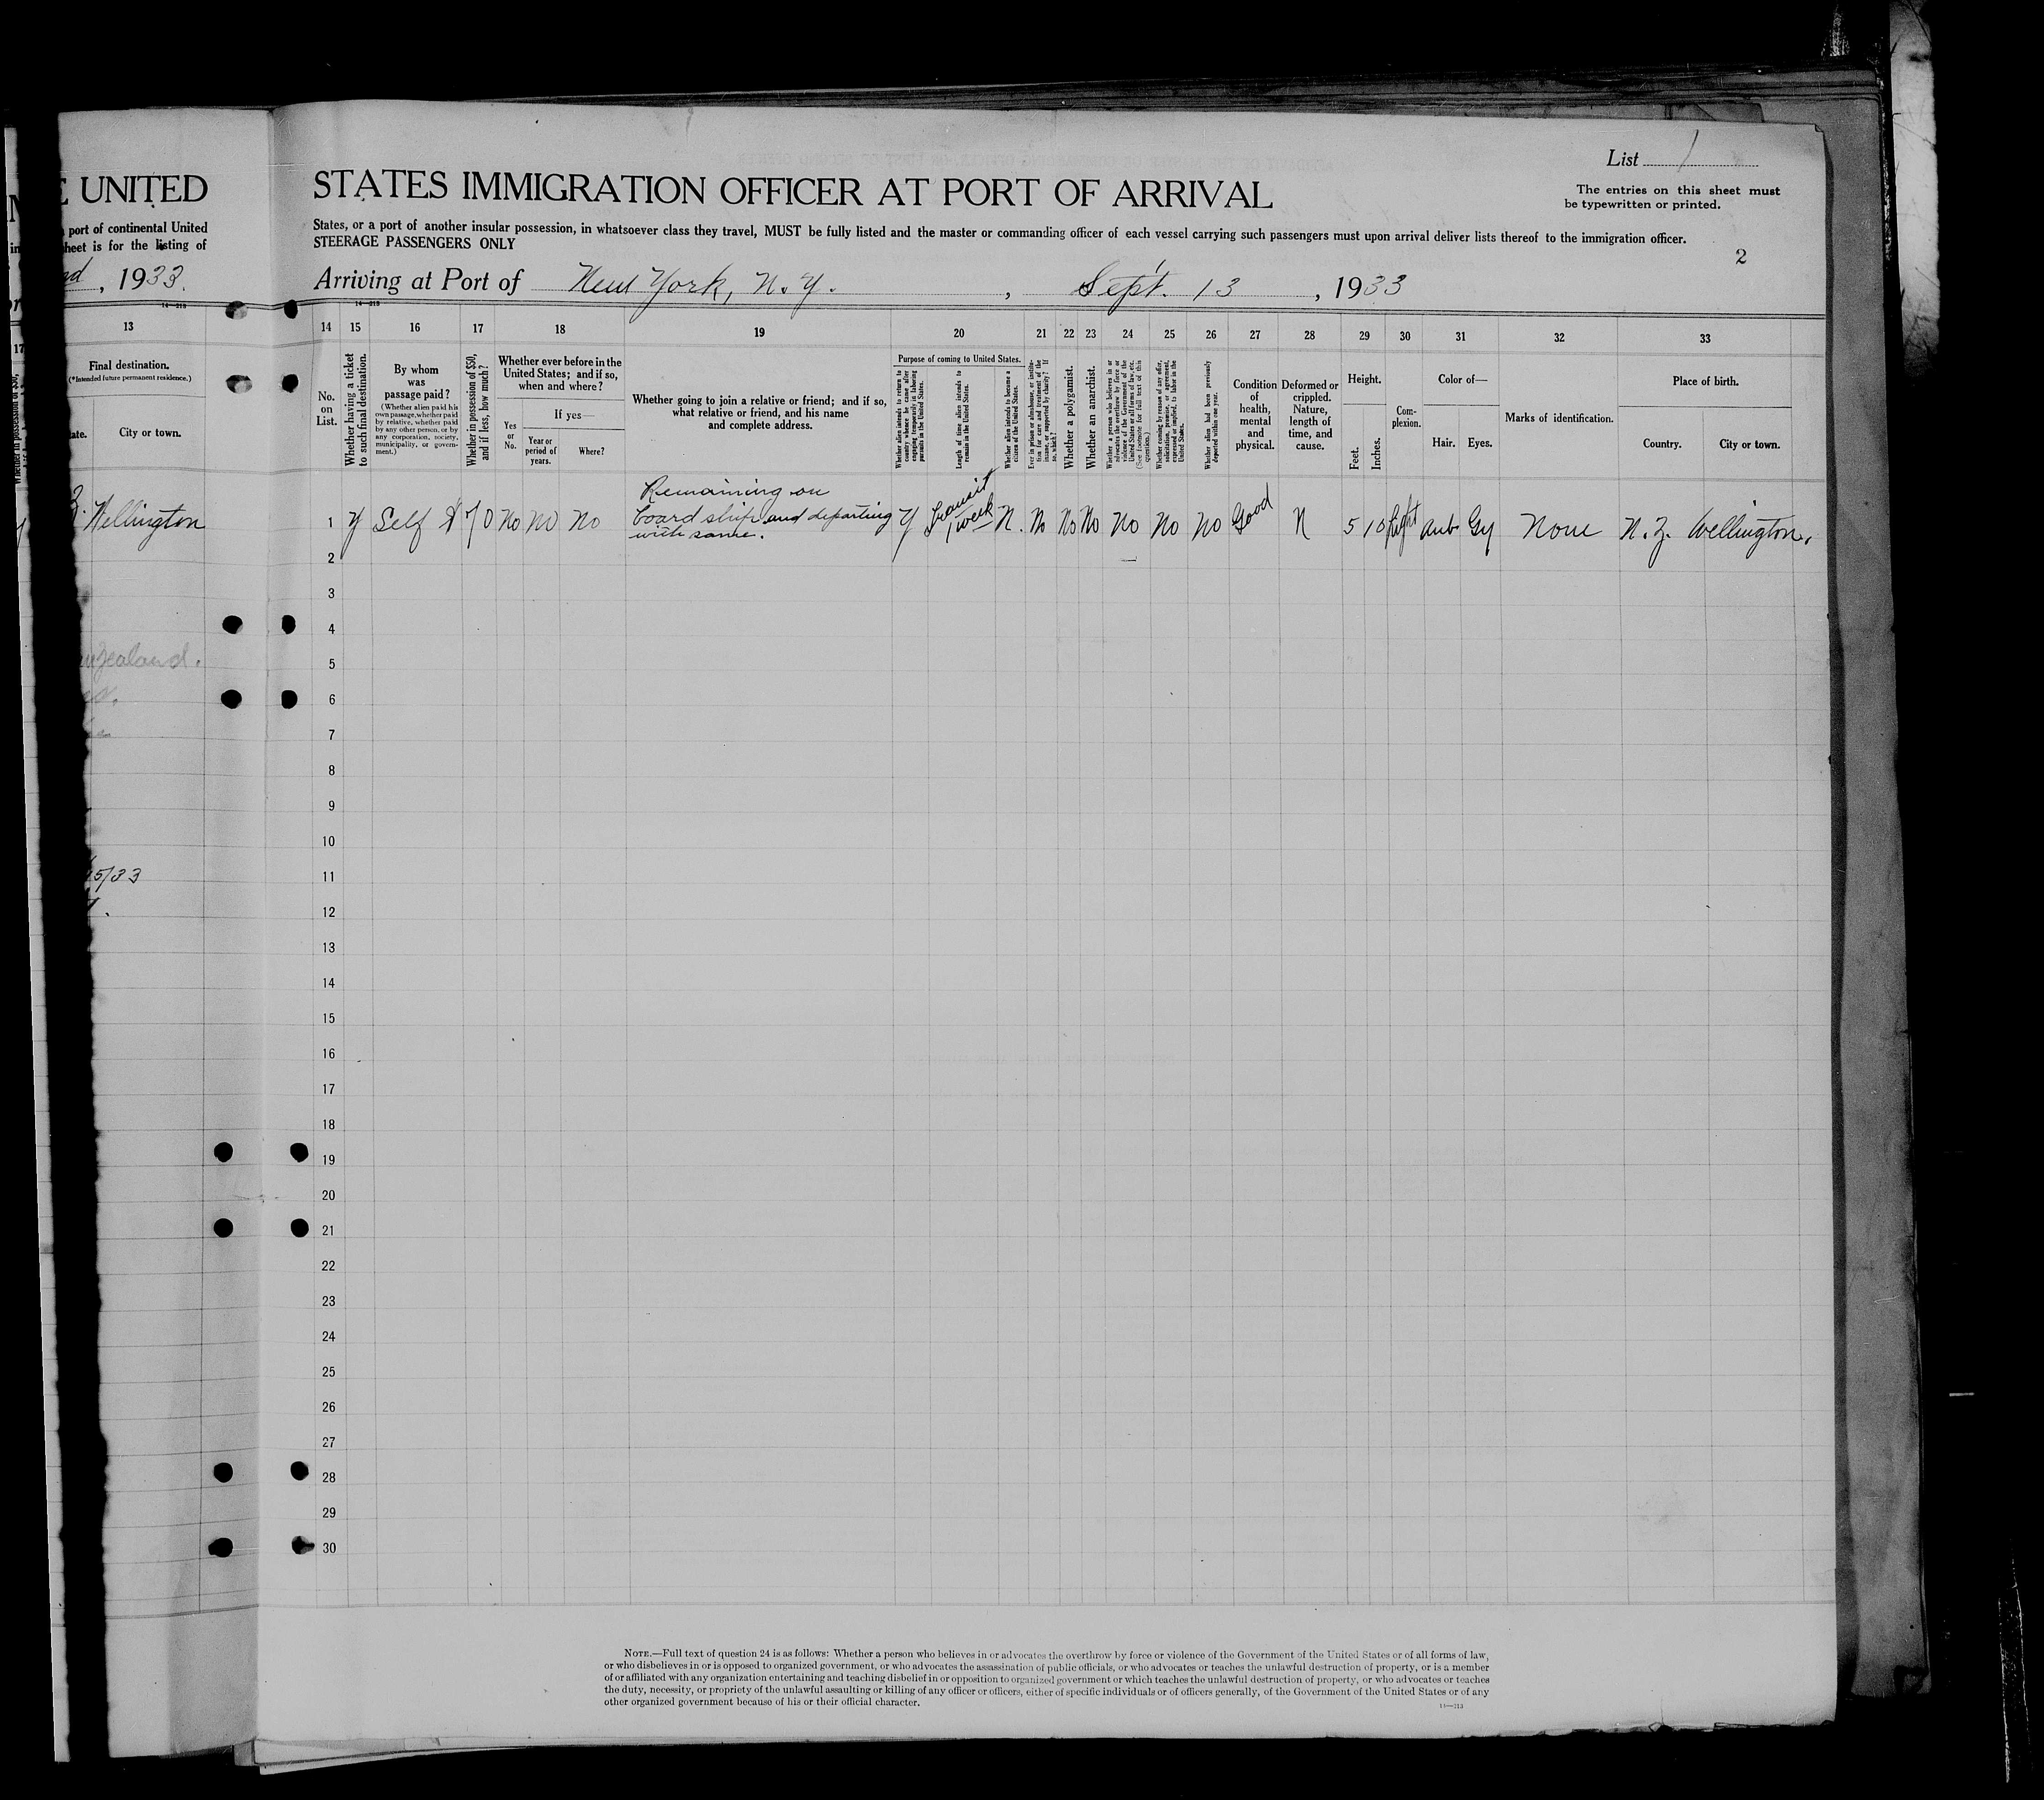 UNITED
port of continental United
sheet is for the listing of
, 1933.
13
Final destination.
(*Intended future permanent residence.)
City or town.
Wellington
Zealand.
5/33
List 1
The entries on this sheet must
be typewritten or printed.
STATES IMMIGRATION OFFICER AT PORT OF ARRIVAL
States, or a port of another insular possession, in whatsoever class they travel, MUST be fully listed and the master or commanding officer of each vessel carrying such passengers must upon arrival deliver lists thereof to the immigration officer.
STEERAGE PASSENGERS ONLY
2
Arriving at Port of New York, N.Y. , Sept. 13 , 1933
14 15 16 17 18 19 20 21 22 23 24 25 26 27 28 29 30 31 32 33
No. on List.
Whether having a ticket to such final destination.
By whom was passage paid?
(Whether alien paid his own passage, whether paid by relative, whether paid by any other person, or by any corporation, society, municipality, or government.)
Whether in possession of $50, and if less, how much?
Whether ever before in the United States; and if so, when and where?
Yes or No.
If yes—
Year or period of years.
Where?
Whether going to join a relative or friend; and if so, what relative or friend, and his name and complete address.
Purpose of coming to United States.
Whether alien intends to return to country whence he came after engaging temporarily in laboring pursuits in the United States.
Length of time alien intends to remain in the United States.
Whether alien intends to become a citizen of the United States.
Ever in prison or almshouse, or institution for care and treatment of the insane, or supported by charity? If so, which?
Whether a polygamist.
Whether an anarchist.
Whether a person who believes in or advocates the overthrow by force or violence of the Government of the United States or all forms of law, etc. (See footnote for full text of this question.)
Whether coming by reason of any offer, solicitation, promise, or agreement, expressed or implied, to labor in the United States.
Whether alien had been previously deported within one year.
Condition of health, mental and physical.
Deformed or crippled. Nature, length of time, and cause.
Height.
Feet. Inches.
Complexion.
Color of—
Hair. Eyes.
Marks of identification.
Place of birth.
Country. City or town.
1 Y Self $70 No No No Remaining on board ship and departing with same. Y Transit 1 week N. No No No No No No Good N 5 10 light aub Gy None N.Z. Wellington.
2
3
4
5
6
7
8
9
10
11
12
13
14
15
16
17
18
19
20
21
22
23
24
25
26
27
28
29
30
NOTE.—Full text of question 24 is as follows: Whether a person who believes in or advocates the overthrow by force or violence of the Government of the United States or of all forms of law,
or who disbelieves in or is opposed to organized government, or who advocates the assassination of public officials, or who advocates or teaches the unlawful destruction of property, or is a member
of or affiliated with any organization entertaining and teaching disbelief in or opposition to organized government or which teaches the unlawful destruction of property, or who advocates or teaches
the duty, necessity, or propriety of the unlawful assaulting or killing of any officer or officers, either of specific individuals or of officers generally, of the Government of the United States or of any
other organized government because of his or their official character.